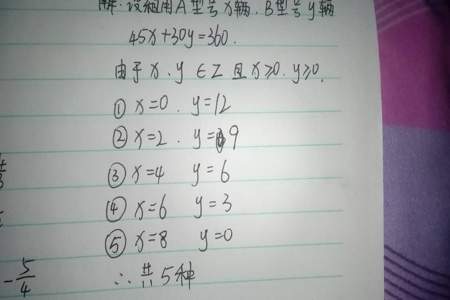 解:设租用A型号x辆,B型号y辆
45x+30y=360.
由于x、y∈Z且x≥0.y≥0.
① x=0. y=12
② x=2. y=9
③ x=4 y=6
④ x=6 y=3
⑤ x=8 y=0
∴共5种
-5/4